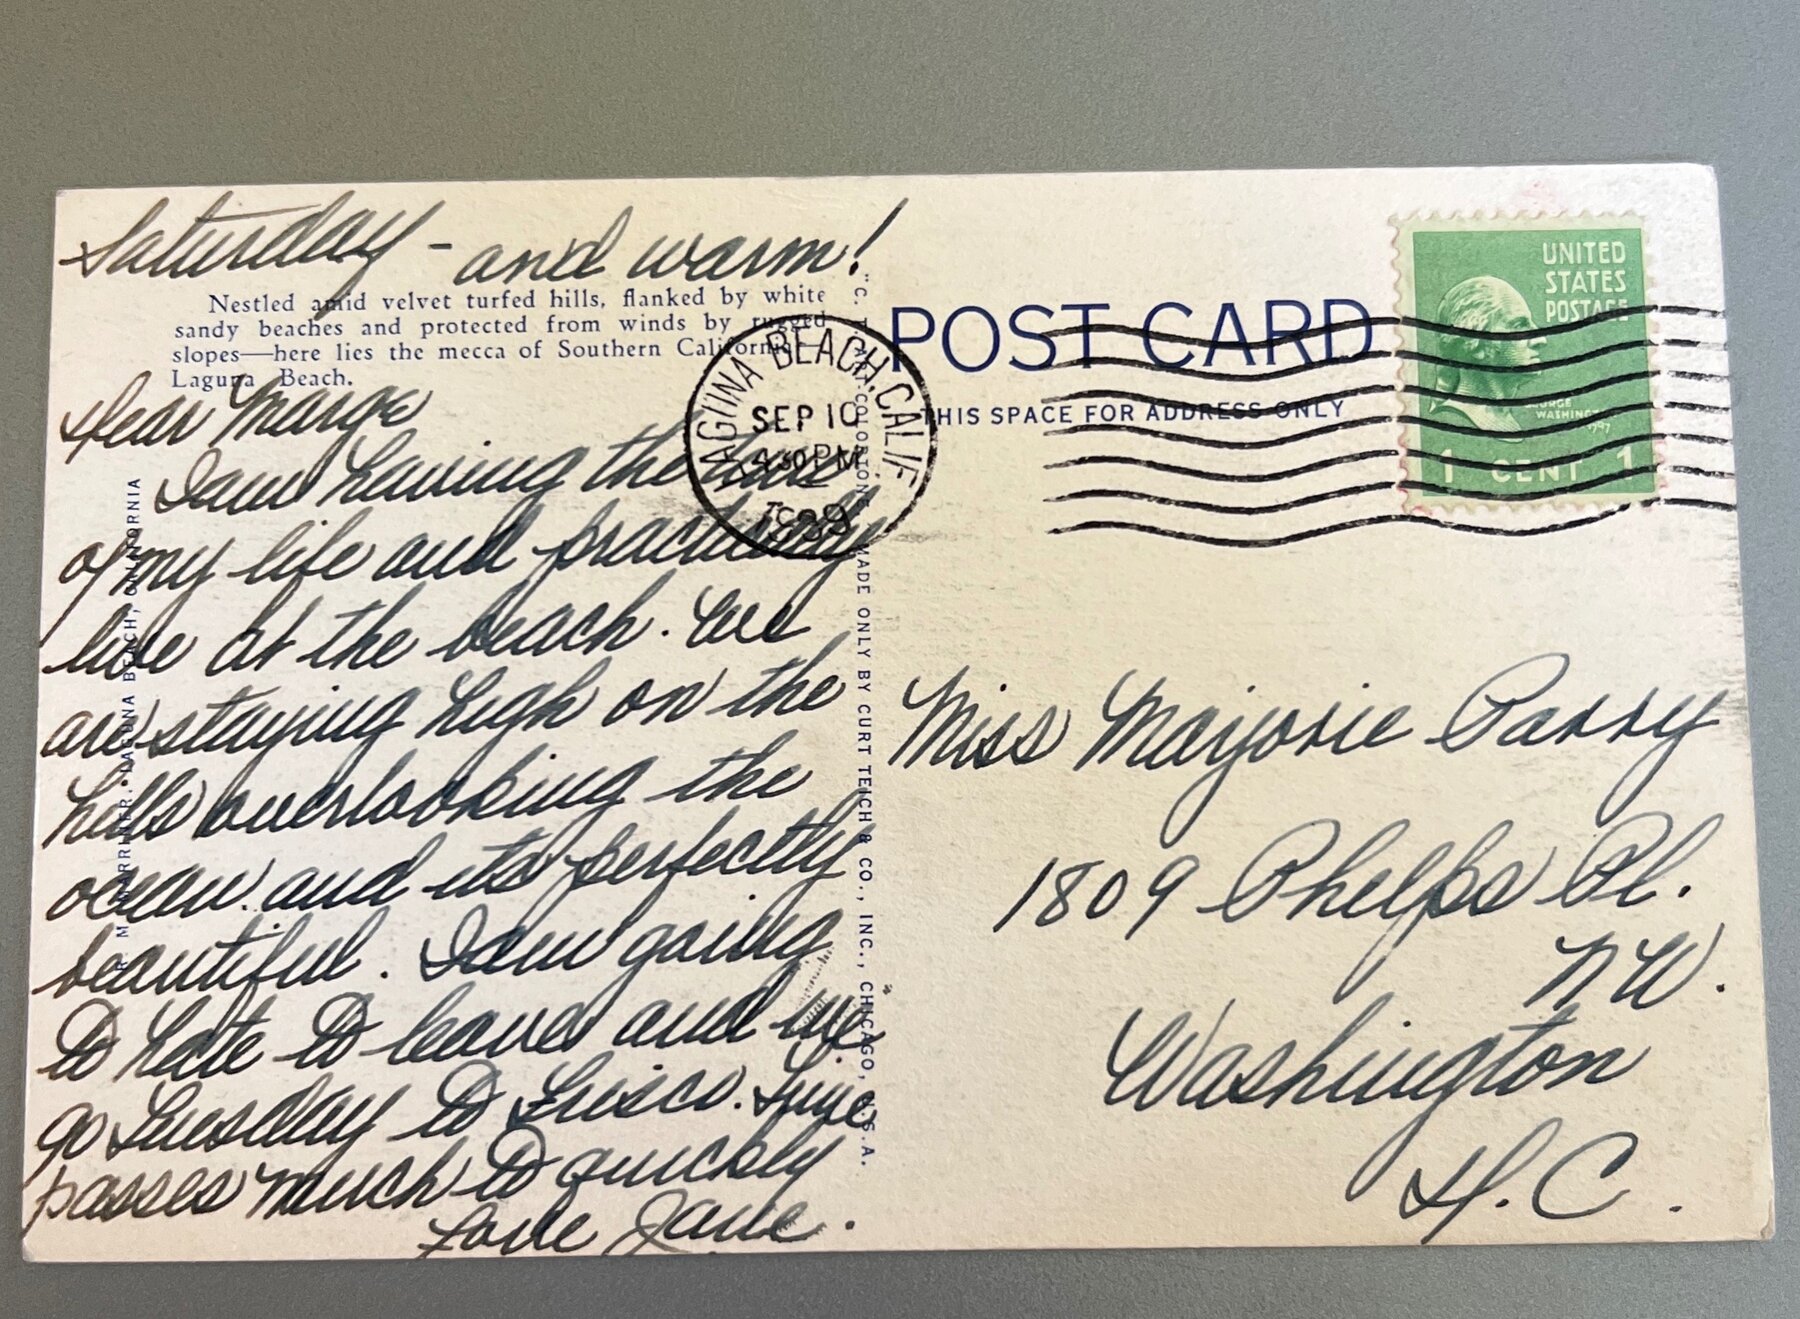 Saturday - and warm!
Nestled amid velvet turfed hills, flanked by white
sandy beaches and protected from winds by rugged
slopes—here lies the mecca of Southern California—
Laguna Beach.
Dear Marge
I am having the time
of my life and practically
live at the beach. We
are staying high on the
hills overlooking the
ocean. and its perfectly
beautiful. I am going
to hate to leave and we
go Tuesday to Frisco. Time
passes much to quickly
Love Jane.
MARRINER. LAGUNA BEACH, CALIFORNIA
"C. T. ART-COLORTONE" MADE ONLY BY CURT TEICH & CO., INC., CHICAGO, U.S.A.
LAGUNA BEACH, CALIF.
SEP 10
4 30 PM
1938
POST CARD
THIS SPACE FOR ADDRESS ONLY
UNITED
STATES
POSTAGE
GEORGE
WASHINGTON
1 CENT 1
Miss Marjorie Parry
1809 Phelps Pl.
N W.
Washington
D.C.